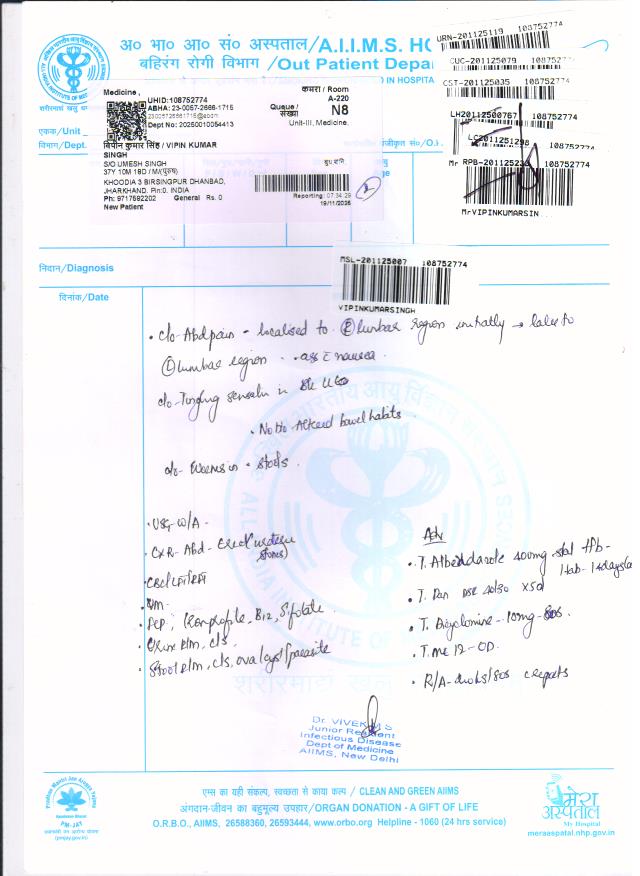 अ० भा० आ० सं० अस्पताल/A.I.I.M.S. HO
बहिरंग रोगी विभाग /Out Patient Depar
D IN HOSPITA
URN-201125119 108752774
CUC-201125079 108752774
CST-201125035 108752774
LH20112500767 108752774
LC2011251298 108752774
Mr RPB-201125236 108752774
MrVIPINKUMARSIN...
Medicine,
UHID:108752774
ABHA: 23-0057-2666-1715
Dept No: 20250010054413
कमरा / Room
A-220
Queue /
संख्या
N8
Unit-III, Medicine.
एकक/Unit
विभाग/Dept.
बिपीन कुमार सिंह / VIPIN KUMAR
SINGH
S/O UMESH SINGH
37Y 10M 18D / M/(पुरुष)
KHOODIA 3 BIRSINGPUR DHANBAD,
JHARKHAND. Pin:0. INDIA
Ph: 9717592202 General Rs. 0
New Patient
Reporting: 07:34:29
19/11/2025
2
निदान/Diagnosis
MSL-201125007 108752774
VIPINKUMARSINGH
दिनांक/Date
• c/o Abd pain - localised to (R) lumbar region initially → later to
(L) lumbar region. ass c nausea.
c/o Tingling sensation in
• No H/o Altered bowel habits
c/o - Worms in stools.
• USG W/A
• CXR - Abd - Erect
CBC/LFT/RFT
• PEP, Iron profile, B12, S. folate
• Urine R/M, C/S.
• Stool R/M, C/S, ova/cyst/parasite
Adv
• T. Albendazole 400mg stat f/b
1tab - 14 days
• T. Pan DSR 40/30 x 5d
• T. Dicyclomine - 10mg - SOS
• T. MC 12 - OD
• R/A - /SOS c reports
Dr. VIVEK M S
Junior Resident
Infectious Disease
Dept of Medicine
AIIMS, New Delhi
शरीरमाद्यं खलु
एम्स का यही संकल्प, स्वच्छता से काया कल्प / CLEAN AND GREEN AIIMS
अंगदान-जीवन का बहुमूल्य उपहार/ORGAN DONATION - A GIFT OF LIFE
O.R.B.O., AIIMS, 26588360, 26593444, www.orbo.org Helpline - 1060 (24 hrs service)
PM-JAY
मेरा
अस्पताल
My Hospital
meraaspatal.nhp.gov.in